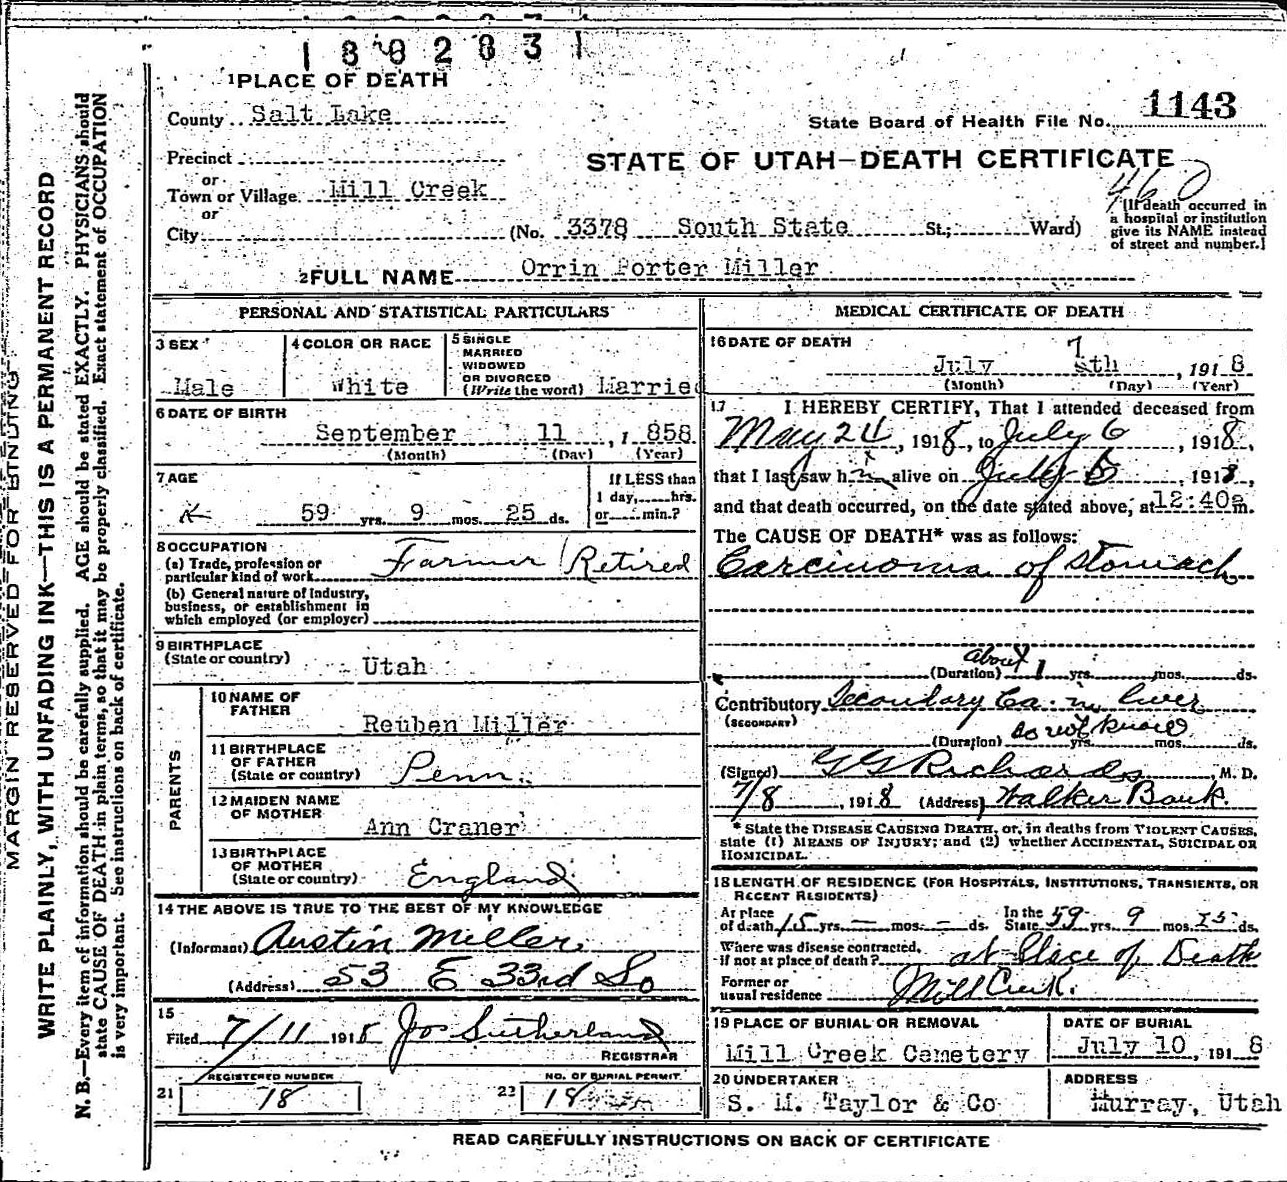 180283
1 PLACE OF DEATH
County Salt Lake
State Board of Health File No. 1143
Precinct
STATE OF UTAH—DEATH CERTIFICATE
or
Town or Village Mill Creek
460
or
City (No. 3378 South State St.; Ward)
[If death occurred in
a hospital or institution
give its NAME instead
of street and number.]
2 FULL NAME Orrin Porter Miller
PERSONAL AND STATISTICAL PARTICULARS
3 SEX
Male
4 COLOR OR RACE
White
5 SINGLE
MARRIED
WIDOWED
OR DIVORCED
(Write the word) Married
6 DATE OF BIRTH
September 11, 1858
(Month) (Day) (Year)
7 AGE
59 yrs. 9 mos. 25 ds.
If LESS than
1 day, hrs.
or min.?
8 OCCUPATION
(a) Trade, profession or
particular kind of work Farmer Retired
(b) General nature of Industry,
business, or establishment in
which employed (or employer)
9 BIRTHPLACE
(State or country) Utah
PARENTS
10 NAME OF
FATHER
Reuben Miller
11 BIRTHPLACE
OF FATHER
(State or country) Penn.
12 MAIDEN NAME
OF MOTHER
Ann Craner
13 BIRTHPLACE
OF MOTHER
(State or country) England
14 THE ABOVE IS TRUE TO THE BEST OF MY KNOWLEDGE
(Informant) Austin Miller.
(Address) 53 E 33rd So
15
Filed 7/11 1918 Jos Sutherland
REGISTRAR
REGISTERED NUMBER
21 78
NO. OF BURIAL PERMIT.
22 18
MEDICAL CERTIFICATE OF DEATH
16 DATE OF DEATH
July 7 th, 1918
(Month) (Day) (Year)
17 I HEREBY CERTIFY, That I attended deceased from
May 24, 1918, to July 6, 1918,
that I last saw him alive on July 5, 1918,
and that death occurred, on the date stated above, at 12:40a m.
The CAUSE OF DEATH* was as follows:
Carcinoma of Stomach
(Duration) About 1 yrs. mos. ds.
Contributory Secondary Ca. in liver
(SECONDARY)
(Duration) do not know yrs. mos. ds.
(Signed) G G Richards, M. D.
7/8, 1918 (Address) Walker Bank.
* State the DISEASE CAUSING DEATH, or, in deaths from VIOLENT CAUSES,
state (1) MEANS OF INJURY; and (2) whether ACCIDENTAL, SUICIDAL OR
HOMICIDAL.
18 LENGTH OF RESIDENCE (FOR HOSPITALS, INSTITUTIONS, TRANSIENTS, OR
RECENT RESIDENTS)
At place of death 15 yrs. – mos. – ds. In the State 59 yrs. 9 mos. 25 ds.
Where was disease contracted,
if not at place of death? at Place of Death
Former or
usual residence Mill Creek.
19 PLACE OF BURIAL OR REMOVAL
Mill Creek Cemetery
DATE OF BURIAL
July 10, 1918
20 UNDERTAKER
S. M. Taylor & Co
ADDRESS
Murray, Utah
READ CAREFULLY INSTRUCTIONS ON BACK OF CERTIFICATE
MARGIN RESERVED FOR BINDING
WRITE PLAINLY, WITH UNFADING INK—THIS IS A PERMANENT RECORD
N. B.—Every item of information should be carefully supplied. AGE should be stated EXACTLY. PHYSICIANS should
state CAUSE OF DEATH in plain terms, so that it may be properly classified. Exact statement of OCCUPATION
is very important. See instructions on back of certificate.